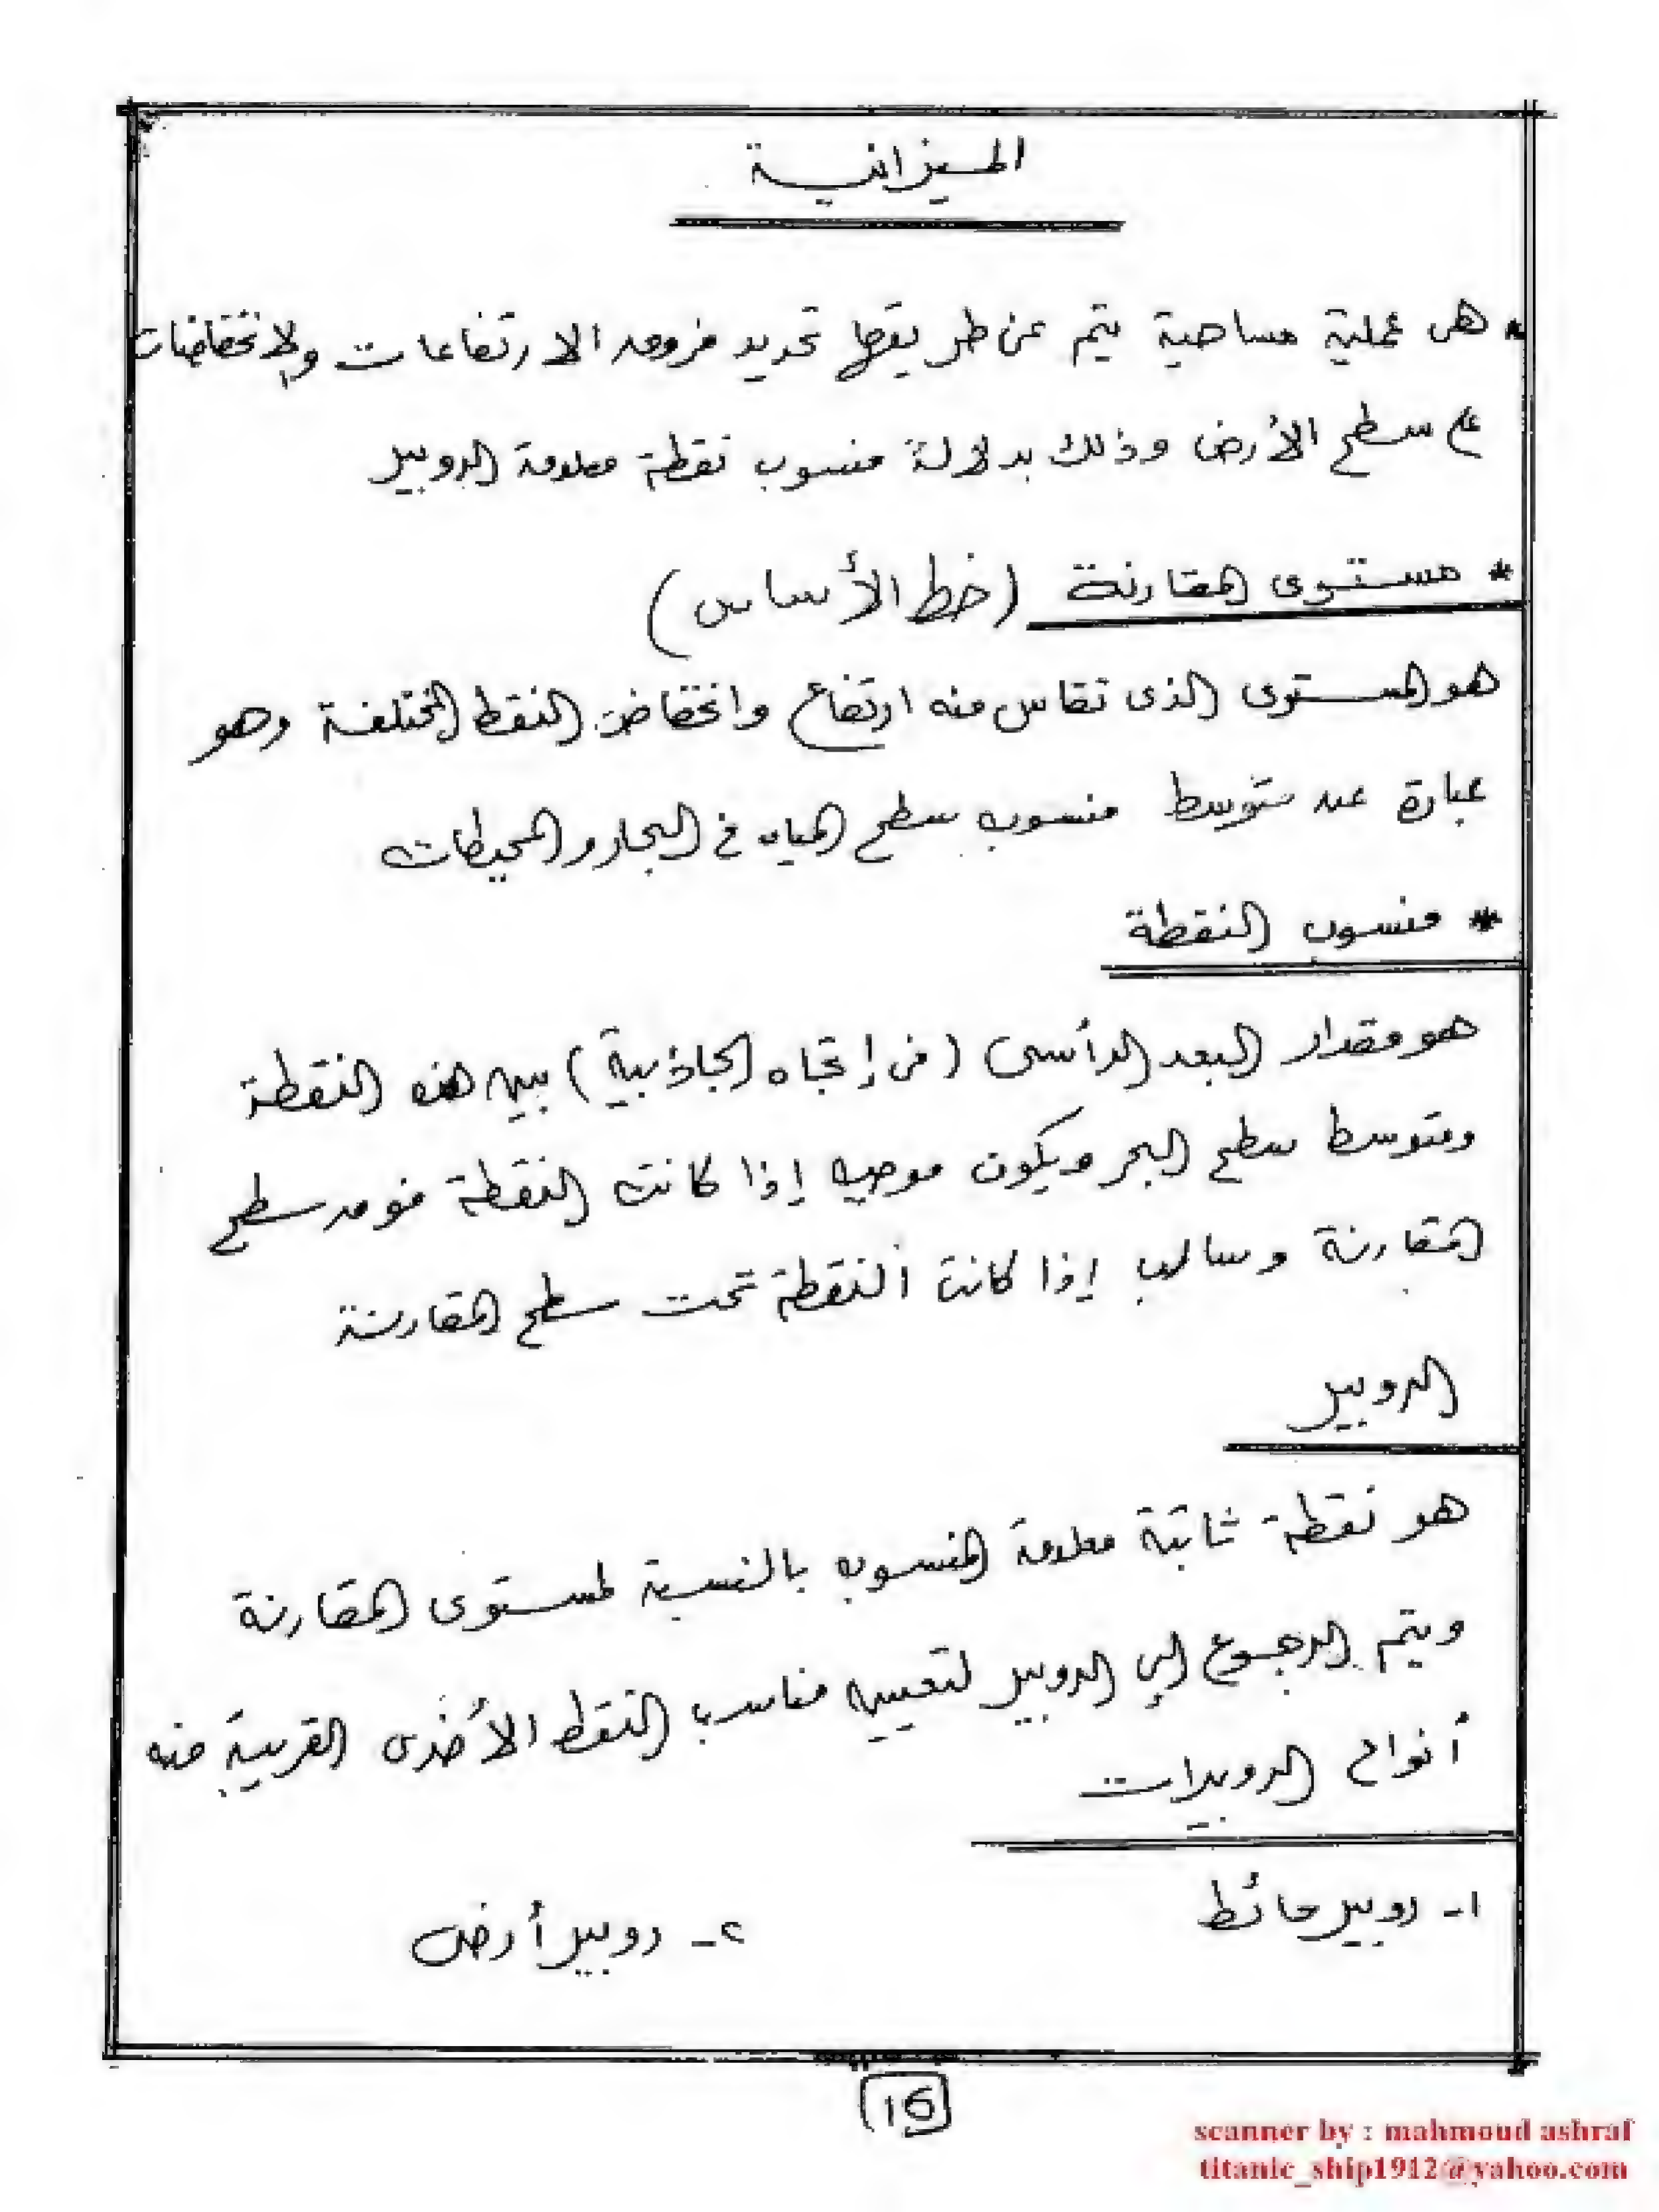 الميزانية
* هى عملية مساحية يتم عن طريقها تحديد فروق الارتفاعات والانخفاضات
على سطح الأرض وذلك بدلالة منسوب نقطة معلومة الروبير
* مستوى المقارنة (خط الأساس)
هو المستوى الذى تقاس منه ارتفاع وانخفاض النقط المختلفة وهو
عبارة عن متوسط منسوب سطح المياه فى البحار والمحيطات
* منسوب النقطة
هو مقدار البعد الرأسى (فى إتجاه الجاذبية) بين هذه النقطة
ومتوسط سطح البحر ويكون موجب إذا كانت النقطة فوق سطح
المقارنة وسالب إذا كانت النقطة تحت سطح المقارنة
الروبير
هو نقطة ثابتة معلومة المنسوب بالنسبة لمستوى المقارنة
ويتم الرجوع إلى الروبير لتعيين مناسب النقط الأخرى القريبة منه
أنواع الروبيرات
١- روبير حائط
٢- روبير أرضى
15
scanner by : mahmoud ashraf
titanic_ship1912@yahoo.com